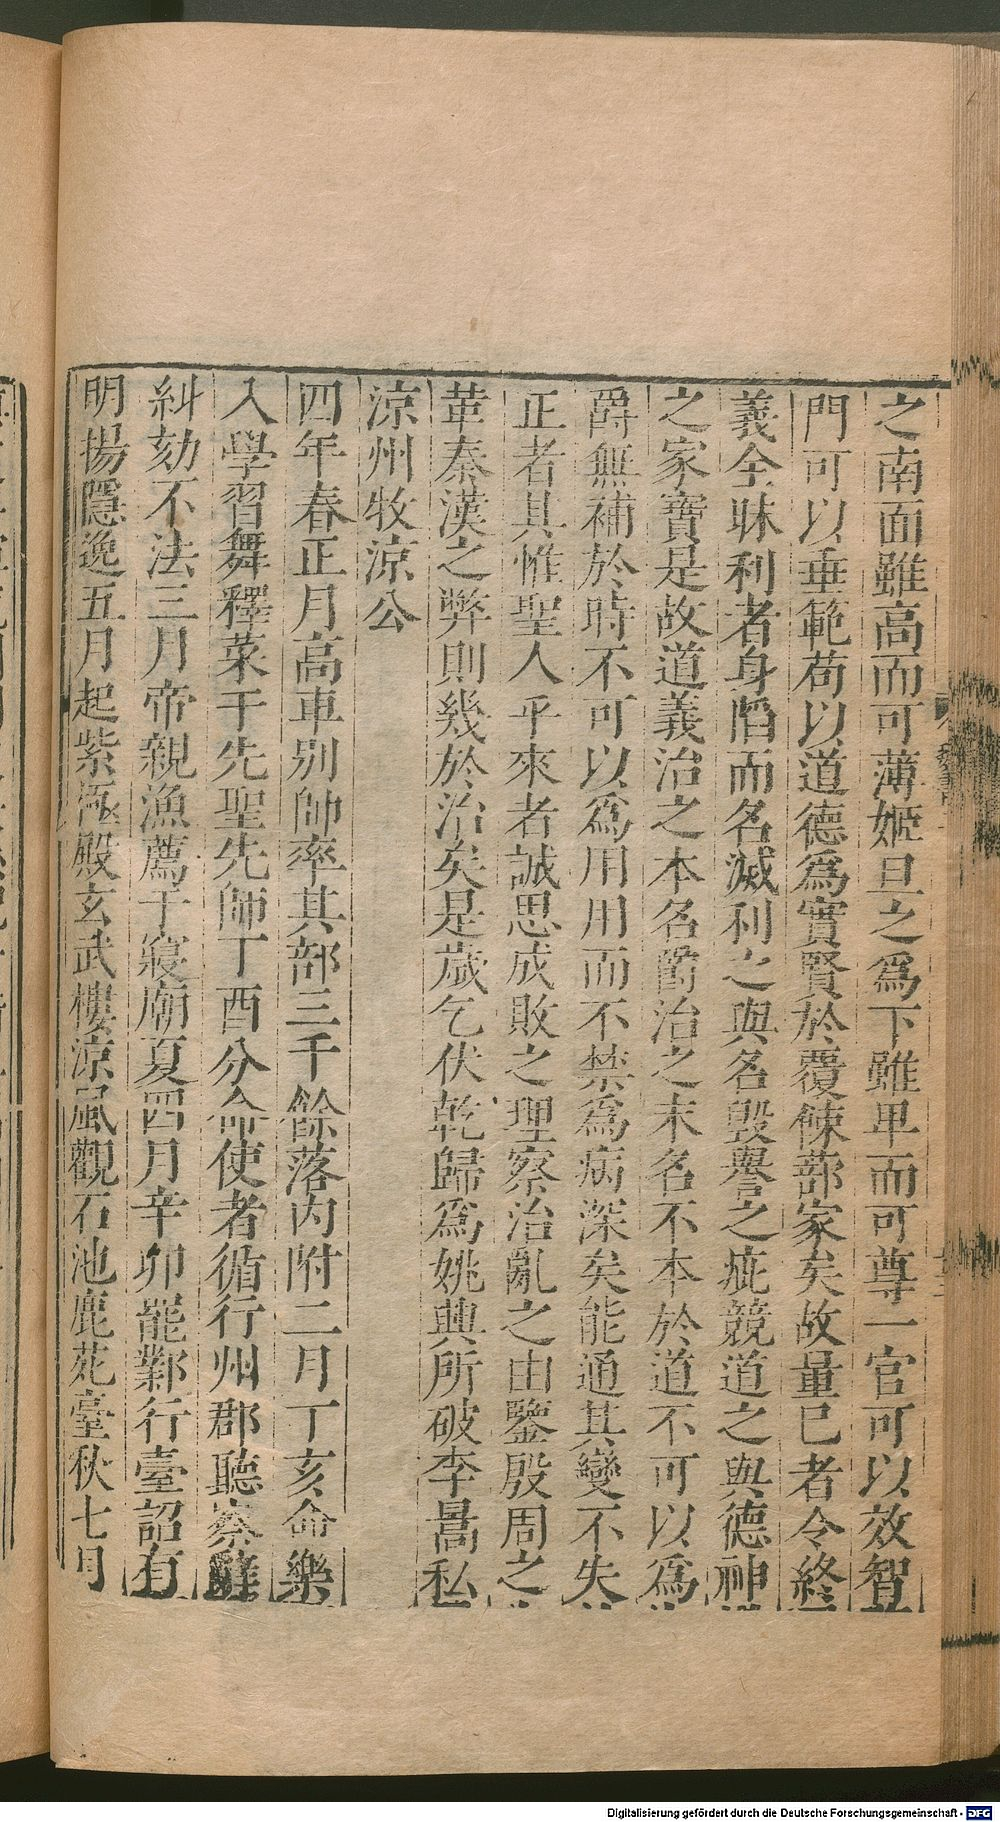 之南面雖高而可薄姬旦之爲下雖卑而可尊一官可以效智
門可以垂範苟以道德爲實賢於覆餗蔀家矣故量己者令終
義全昧利者身陷而名滅利之與名毀譽之疵競道之與德神
之家寶是故道義治之本名爵治之末名不本於道不可以爲
爵無補於時不可以爲用用而不禁爲病深矣能通其變不失
正者其惟聖人乎來者誠思成敗之理察治亂之由鑒殷周之
革秦漢之弊則幾於治矣是歲乞伏乾歸爲姚興所破李暠私
涼州牧涼公
四年春正月高車別帥率其部三千餘落內附二月丁亥命樂
入學習舞釋菜于先聖先師丁酉分命使者循行州郡聽察辭
糾劾不法三月帝親漁薦于寢廟夏四月辛卯罷鄴行臺詔有
明揚隱逸五月起紫極殿玄武樓涼風觀石池鹿苑臺秋七月
Digitalisierung gefördert durch die Deutsche Forschungsgemeinschaft - DFG